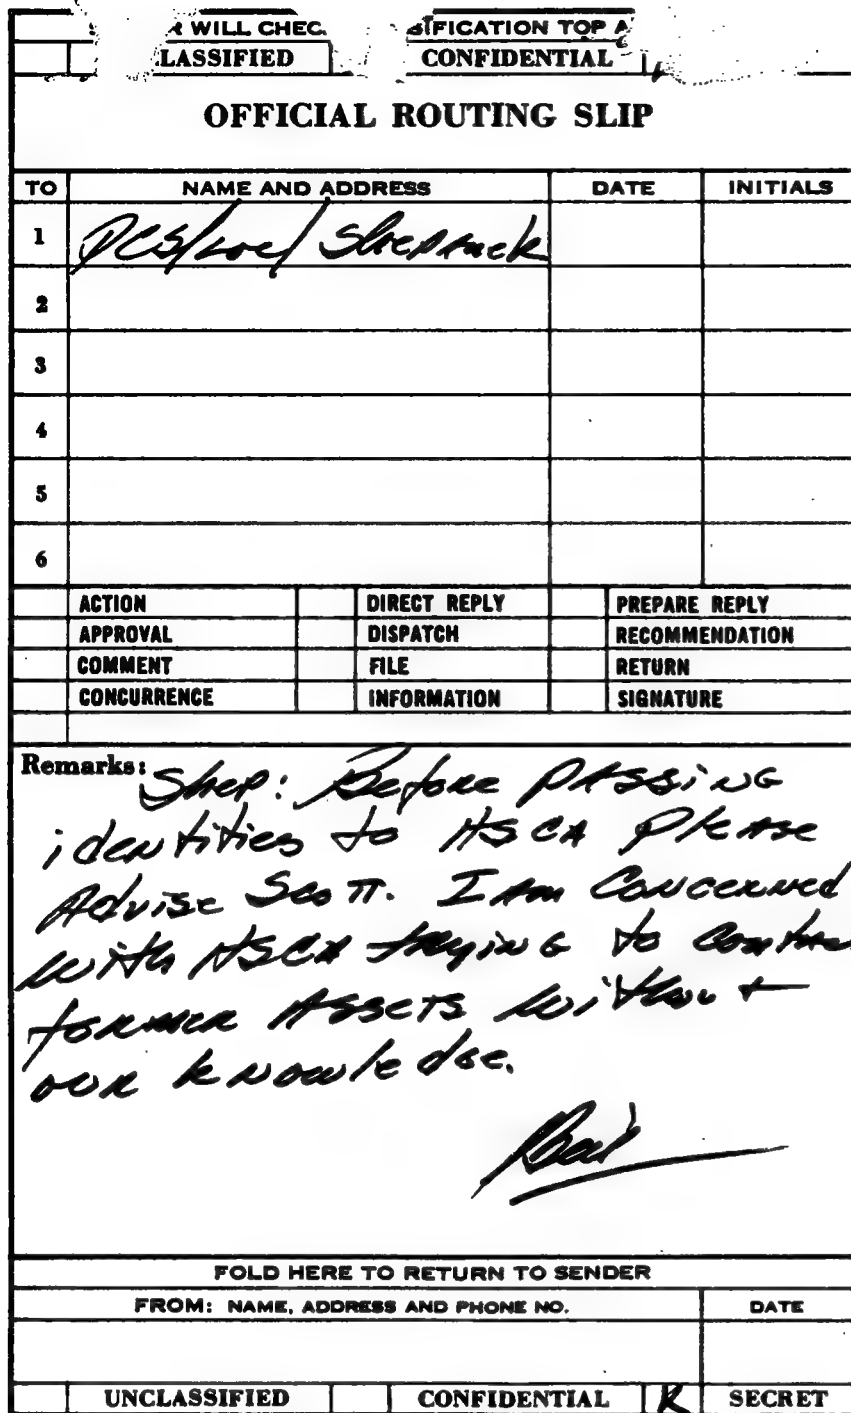 R WILL CHEC SIFICATION TOP A
LASSIFIED CONFIDENTIAL
OFFICIAL ROUTING SLIP
TO NAME AND ADDRESS DATE INITIALS
1
2
3
4
5
6
ACTION DIRECT REPLY PREPARE REPLY
APPROVAL DISPATCH RECOMMENDATION
COMMENT FILE RETURN
CONCURRENCE INFORMATION SIGNATURE
Remarks: Shep: Before PASSING
identities to HSCA Please
Advise Scott. I Am Concerned
with HSCA trying to contac
former Assets without
our knowledge.
FOLD HERE TO RETURN TO SENDER
FROM: NAME, ADDRESS AND PHONE NO. DATE
UNCLASSIFIED CONFIDENTIAL SECRET